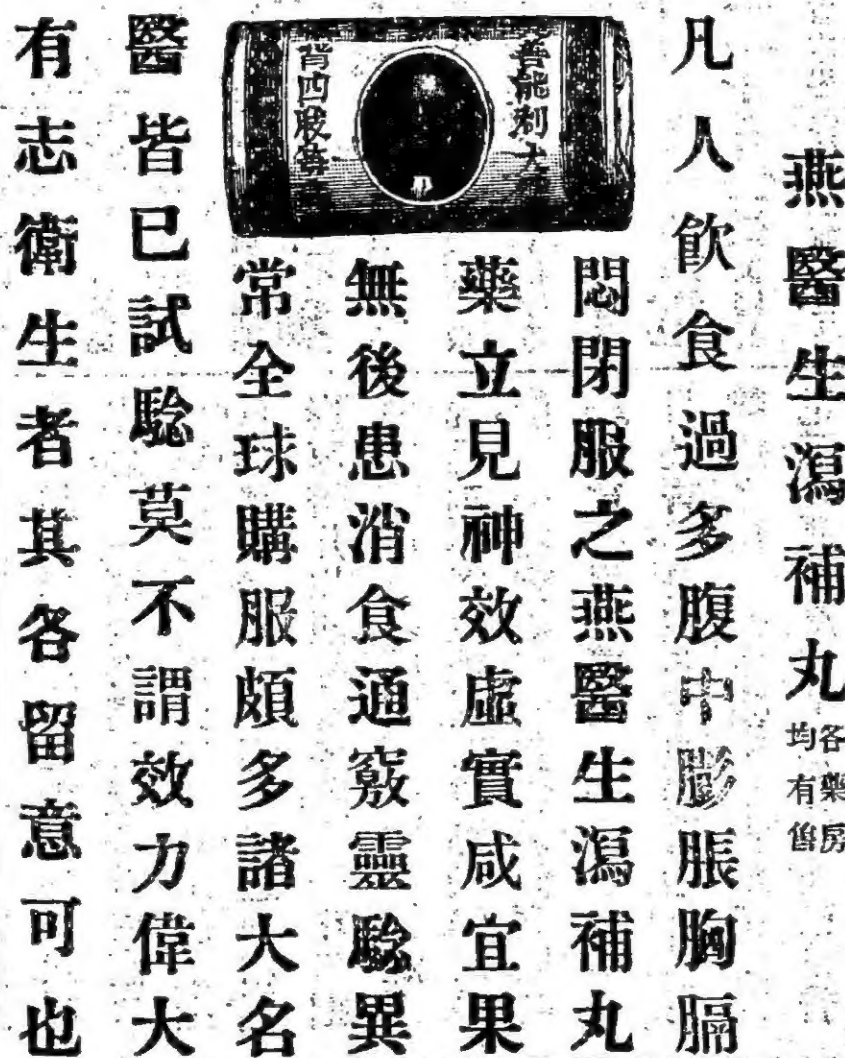 燕醫生瀉補丸
各藥房
均有售
凡人飲食過多腹中膨脹胸膈
悶閉服之燕醫生瀉補丸
藥立見神效虛實咸宜果
無後患消食通竅靈騐異
常全球購服頗多諸大名
醫皆已試騐莫不謂效力偉大
有志衛生者其各留意可也